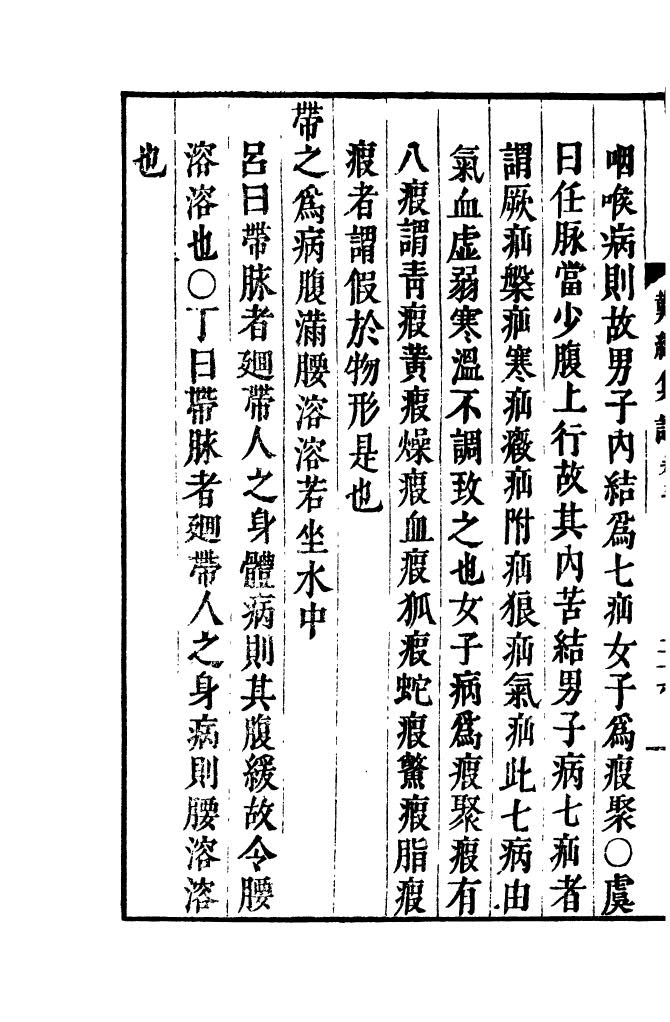 咽喉病則故男子內結爲七疝女子爲瘕聚○虞
曰任脉當少腹上行故其內苦結男子病七疝者
謂厥疝槃疝寒疝癥疝附疝狼疝氣疝此七病由
氣血虛弱寒溫不調致之也女子病爲瘕聚瘕有
八瘕謂靑瘕黃瘕燥瘕血瘕狐瘕蛇瘕鱉瘕脂瘕
瘕者謂假於物形是也
帶之爲病腹滿腰溶溶若坐水中
呂曰帶脉者廻帶人之身體病則其腹緩故令腰
溶溶也○丁曰帶脉者廻帶人之身病則腰溶溶
也